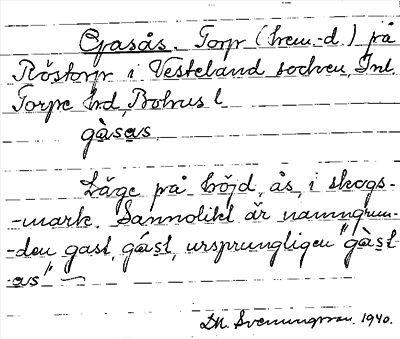 Gasås. Torp (hem.-d.) på
Röstorp i Vesteland socken, Inl.
Torpe hd, Bohus l
gàsas
Läge på höjd, ås, i skogs-
-mark. Sannolikt är namngrun-
-den gast, gást, ursprungligen "gàst
as" —
DH. Svenungsson. 1940.